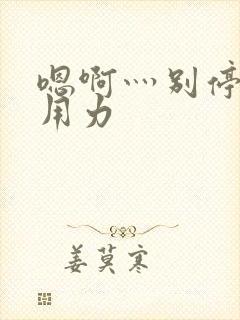 嗯啊灬别停
用力
姜莫寒